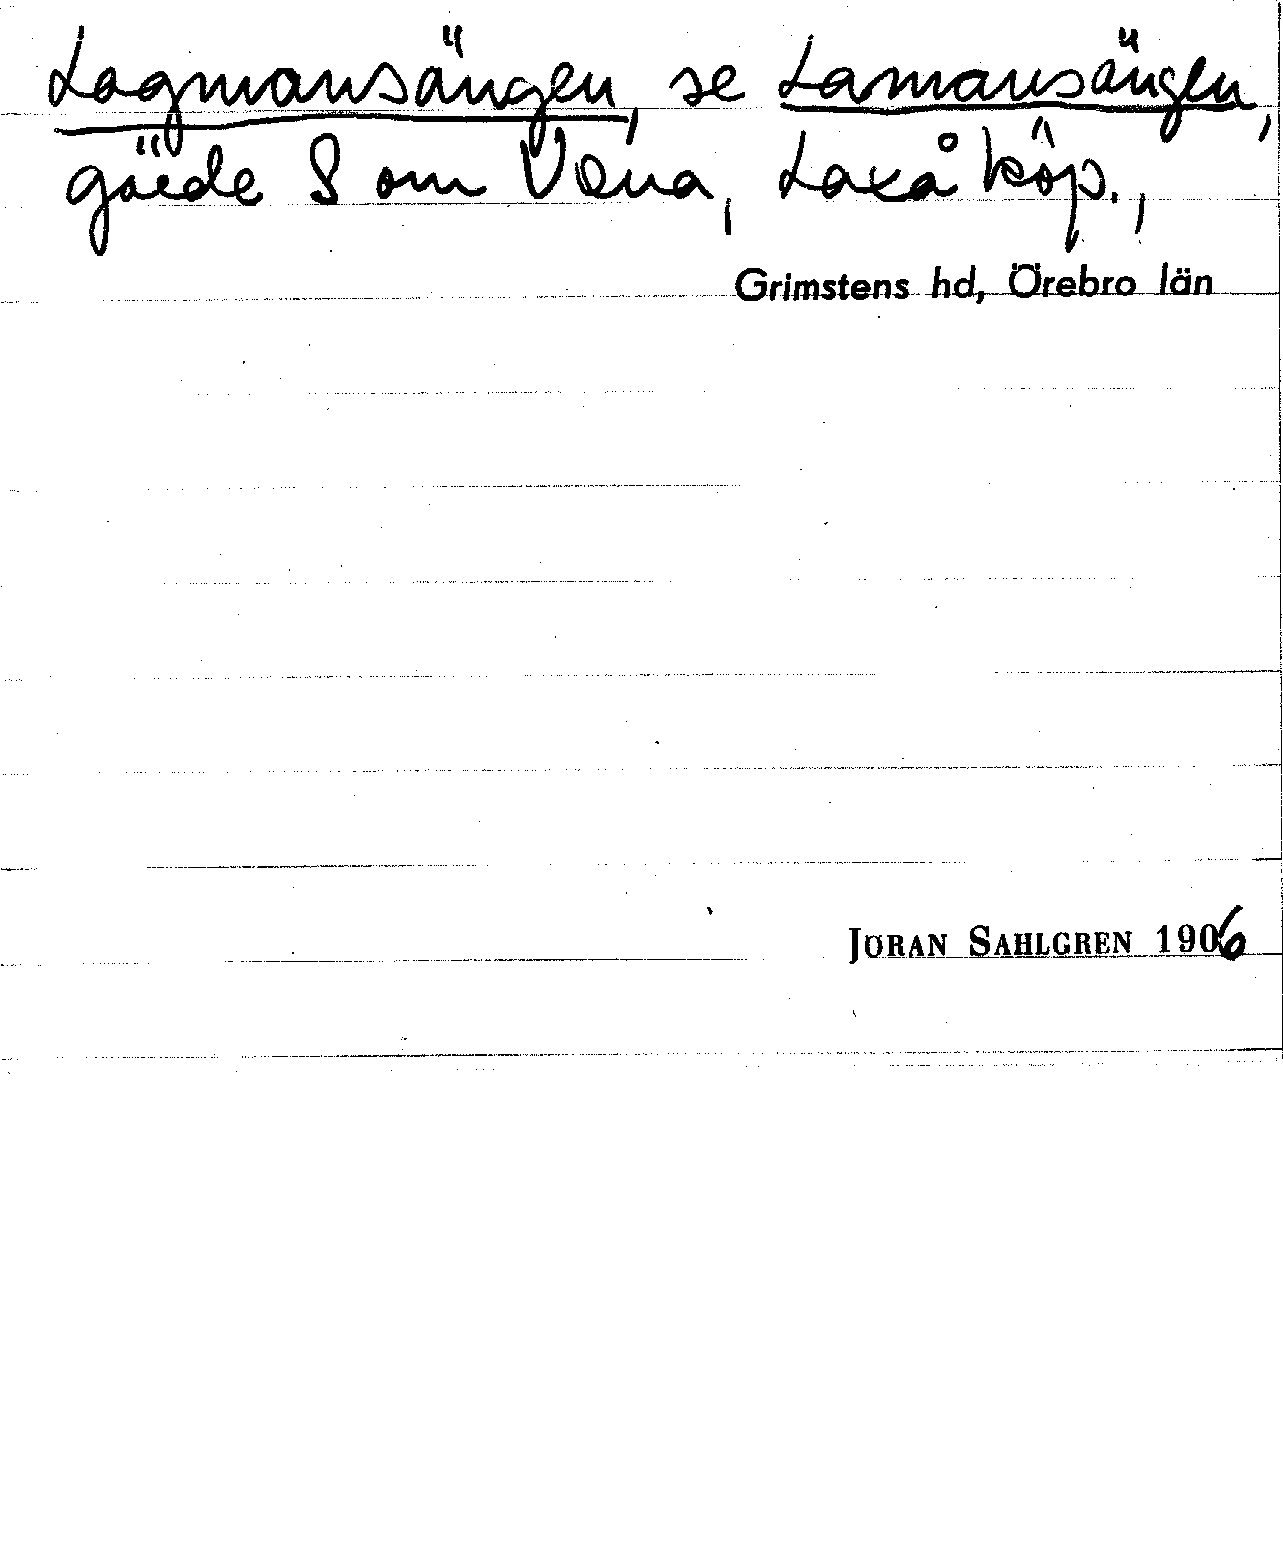 Lagmansängen, se Lamansängen,
gärde S om Vena, Laxå köp.,
Grimstens hd, Örebro län
JÖRAN SAHLGREN 1906